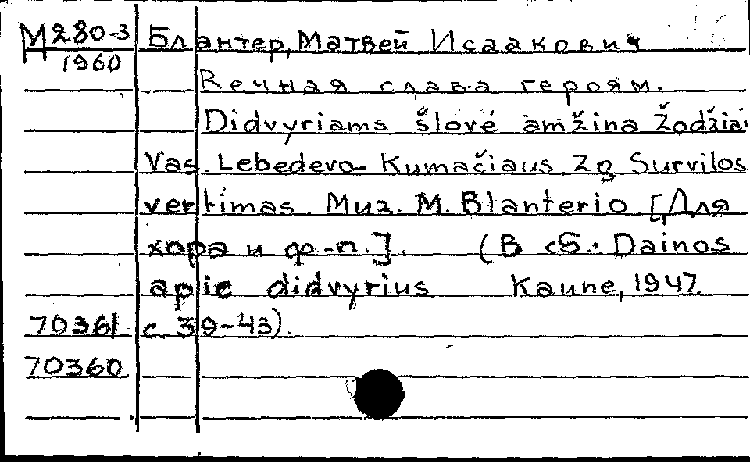 М280-3 Блантер, Матвей Исаакович
1960
Вечная слава героям.
Didvyriams šlové amžina Žodžiai
Vas. Lebedevo-Kumačiaus Zg Survilos
vertimas. Muz. M. Blanterio [Для
хора и ф-п.]. (В сб.: Dainos
apie didvyrius Kaune, 1947.
70361 с 39-43).
70360